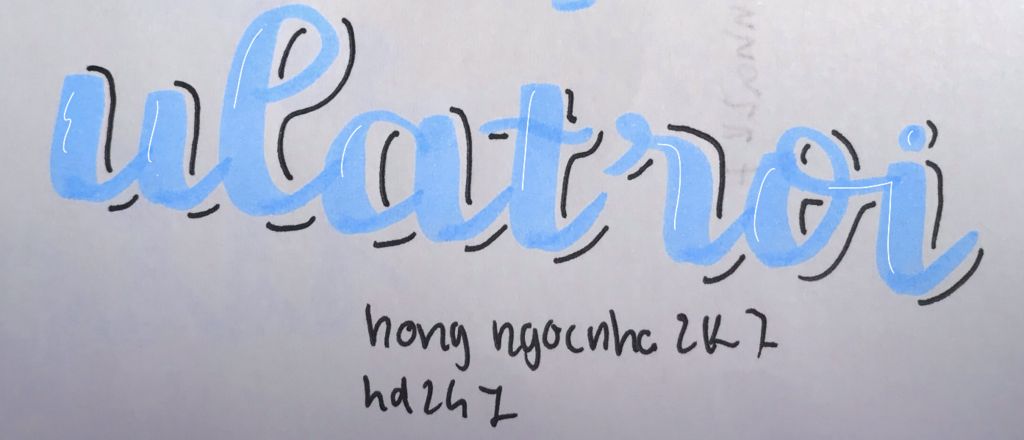 ulatroi
hong ngocnha 2k7
hd247